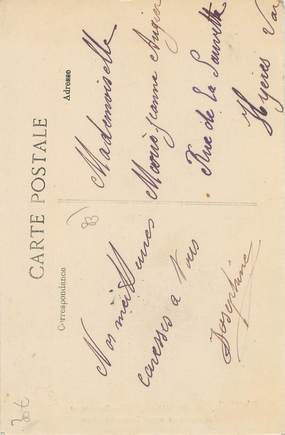 CARTE POSTALE
Correspondance
Adresse
Nos meilleures
caresses a tous
Joséphine
Mademoiselle
Marie Jeanne Augier
Rue de la Sauvette
Hyères Var
83